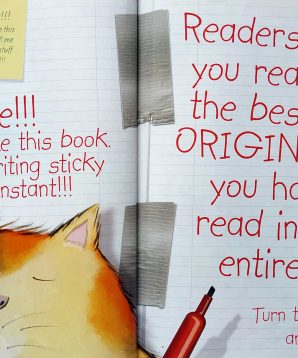 !!!
this
me
stuff
!!!
e!!!
this book.
riting sticky
nstant!!!
Readers
you rea
the bes
ORIGIN
you ha
read in
entire
Turn t
a